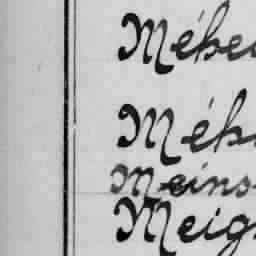 Mébe
Méb
Meins
Meig